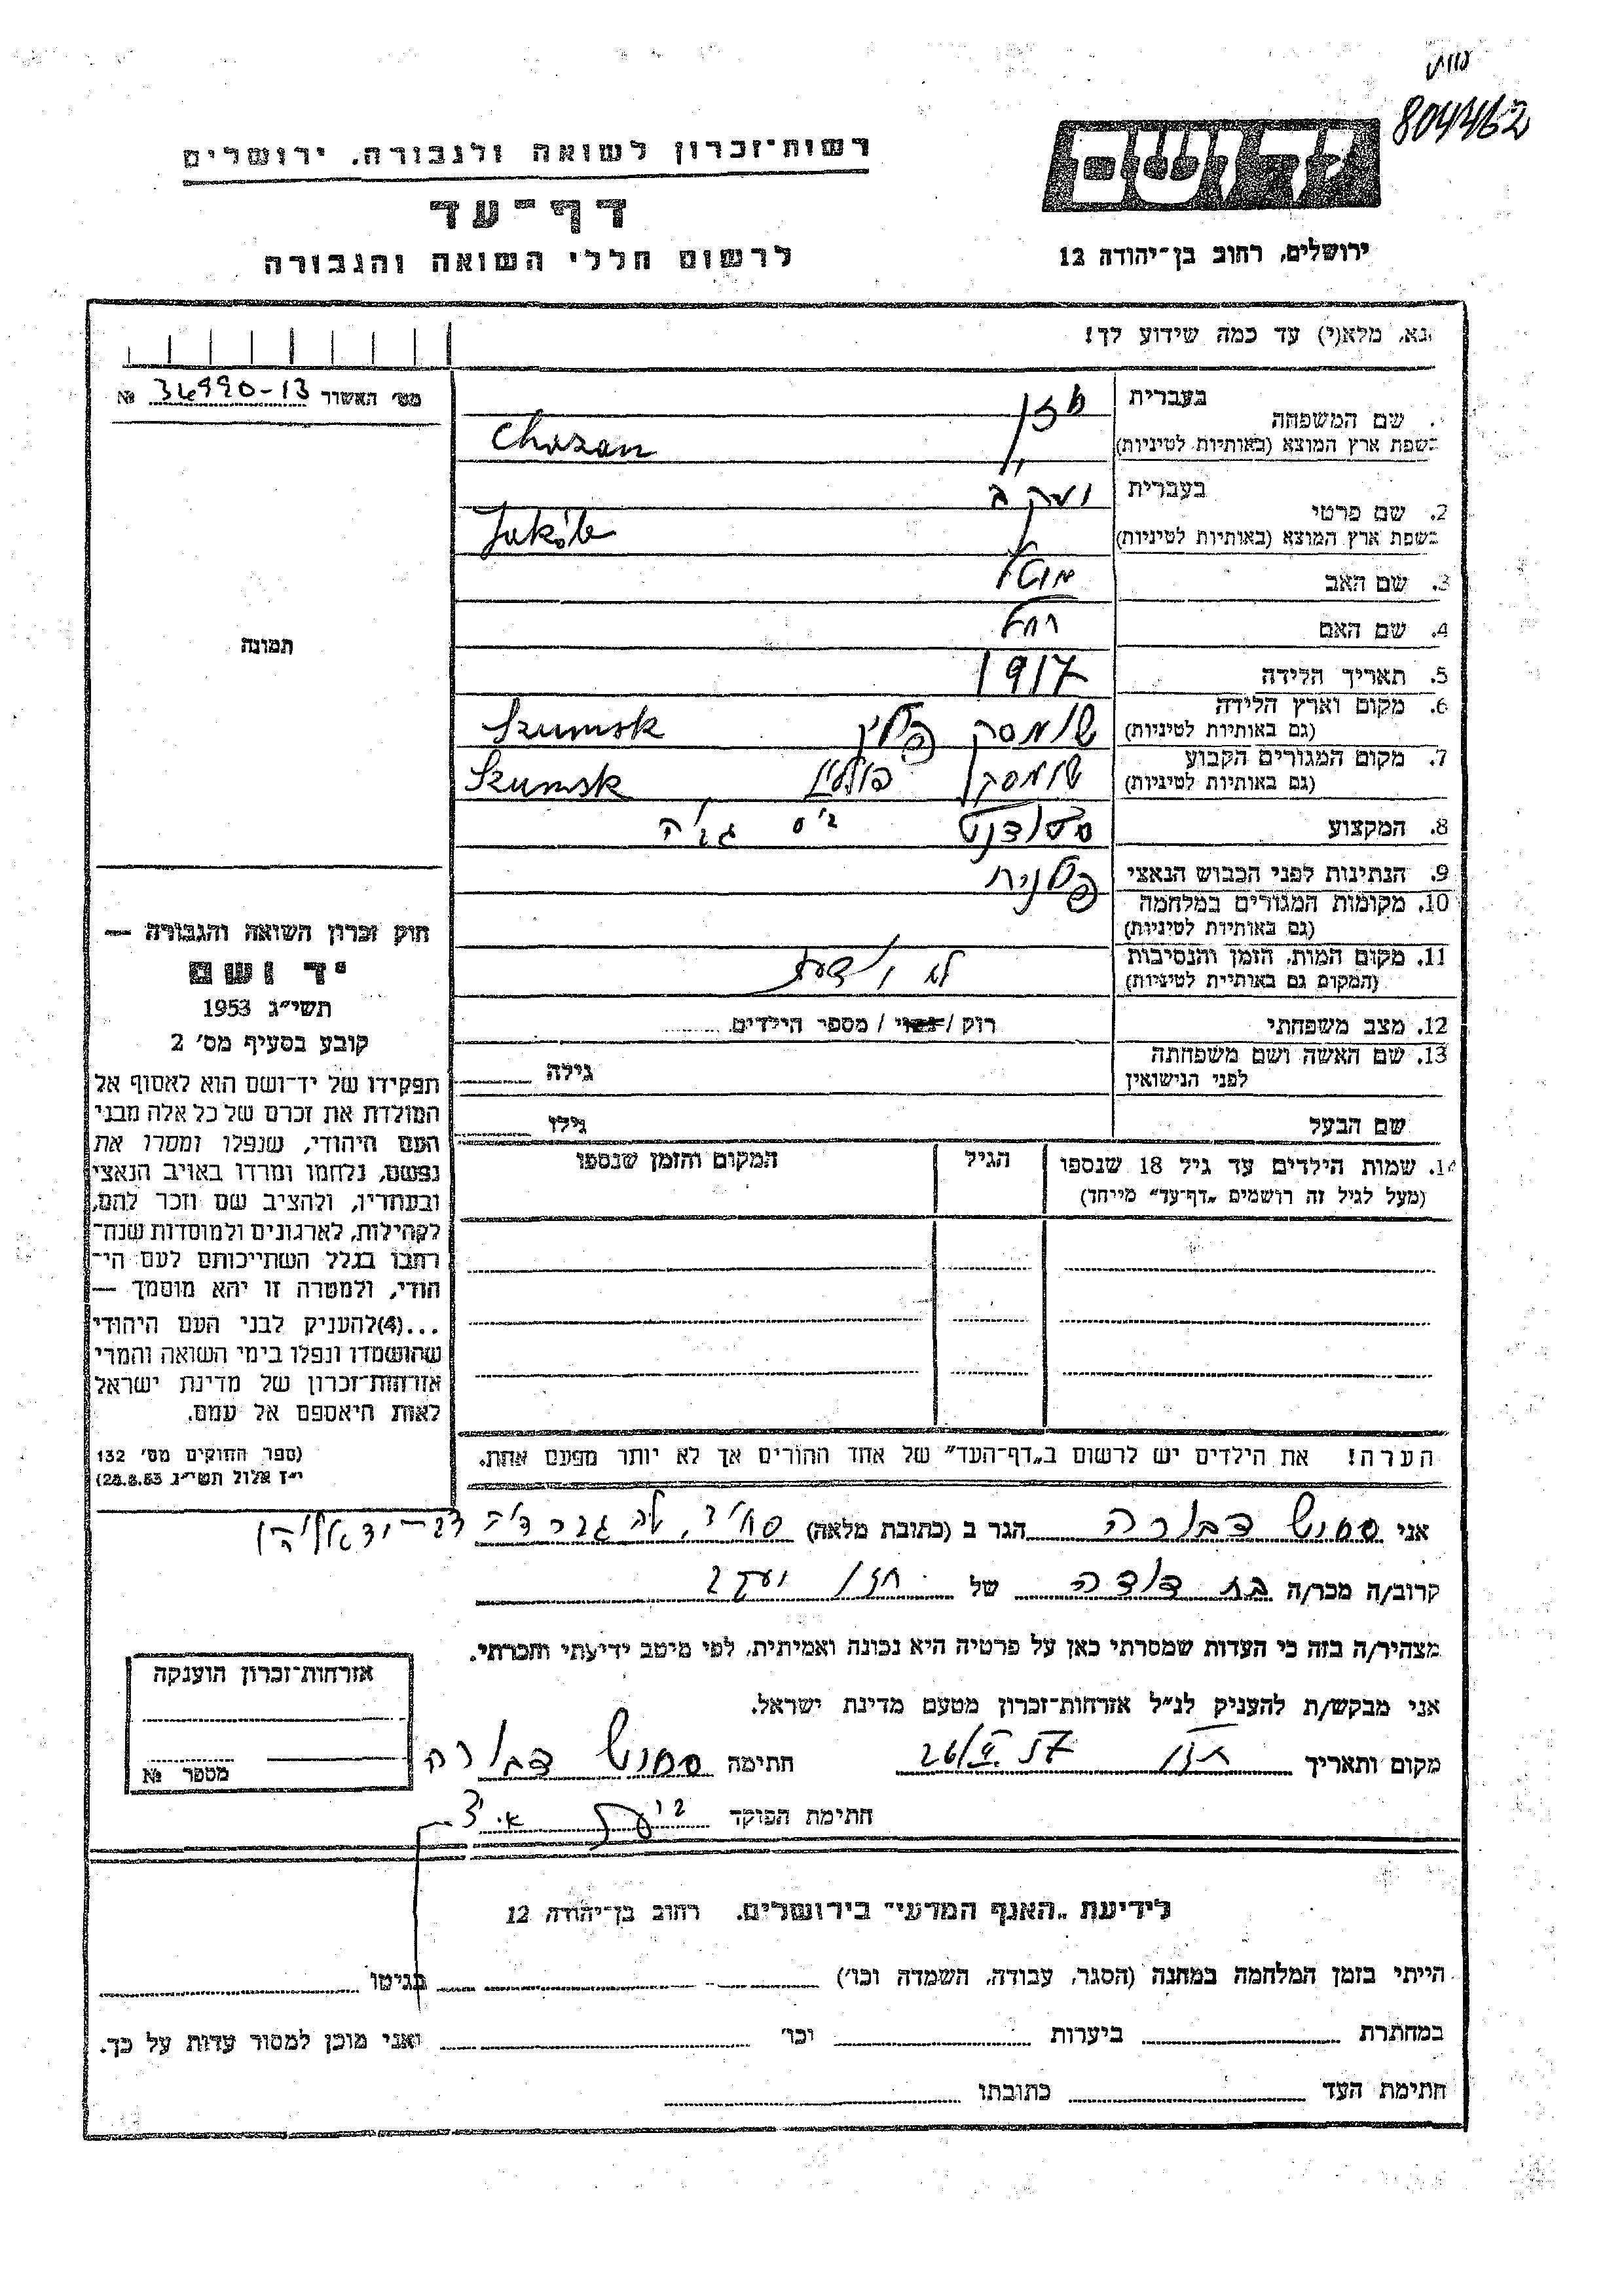 804462
יד ושם
רשות־זכרון לשואה ולגבורה, ירושלים
דף־עד
לרשום חללי השואה והגבורה
ירושלים, רחוב בן־יהודה 12
נא, מלא(י) עד כמה שידוע לך!
מס׳ האשור № 34990-13
תמונה
שם המשפחה
בעברית חזן
בשפת ארץ המוצא (באותיות לטיניות) Chazan
2. שם פרטי
בעברית יעקב
בשפת ארץ המוצא (באותיות לטיניות)
3. שם האב
4. שם האם רחל
5. תאריך הלידה 1917
6. מקום וארץ הלידה שומסק פולין Szumsk
(גם באותיות לטיניות)
7. מקום המגורים הקבוע שומסק פולין Szumsk
(גם באותיות לטיניות)
8. המקצוע סטודנט בי״ס גבוה
9. הנתינות לפני הכבוש הנאצי פולנית
10. מקומות המגורים במלחמה
(גם באותיות לטיניות)
11. מקום המות, הזמן והנסיבות לא ידוע
(המקום גם באותיית לטיניות)
12. מצב משפחתי רוק / נשוי / מספר הילדים
13. שם האשה ושם משפחתה לפני הנישואין גילה
שם הבעל גילו
14. שמות הילדים עד גיל 18 שנספו הגיל המקום והזמן שנספו
(מעל לגיל זה רושמים „דף־עד״ מייחד)
הערה! את הילדים יש לרשום ב„דף־העד״ של אחד ההורים אך לא יותר מפעם אחת.
חוק זכרון השואה והגבורה —
יד ושם
תשי״ג 1953
קובע בסעיף מס׳ 2
תפקידו של יד־ושם הוא לאסוף אל
המולדת את זכרם של כל אלה מבני
העם היהודי, שנפלו ומסרו את
נפשם, נלחמו ומרדו באויב הנאצי
ובעוזריו, ולהציב שם וזכר להם,
לקהילות, לארגונים ולמוסדות שנח־
רבו בגלל השתייכותם לעם הי־
הודי, ולמטרה זו יהא מוסמך —
...(4)להעניק לבני העם היהודי
שהושמדו ונפלו בימי השואה והמרי
אזרחות־זכרון של מדינת ישראל
לאות היאספם אל עמם.
(ספר החוקים מס׳ 132
י״ז אלול תשי״ג 28.8.53)
אני דבורה הגר ב (כתובת מלאה)
קרוב/ה מכר/ה בת דודה של חזן יעקב
מצהיר/ה בזה כי העדות שמסרתי כאן על פרטיה היא נכונה ואמיתית, לפי מיטב ידיעתי והכרתי.
אני מבקש/ת להעניק לנ״ל אזרחות־זכרון מטעם מדינת ישראל.
מקום ותאריך חתימה דבורה
חתימת הפוקד
אזרחות־זכרון הוענקה
מספר №
לידיעת „האגף המדעי״ בירושלים, רחוב בן־יהודה 12
הייתי בזמן המלחמה במחנה (הסגר, עבודה, השמדה וכו׳) בגיטו
במחתרת ביערות וכו׳ ואני מוכן למסור עדות על כך.
חתימת העד כתובתו